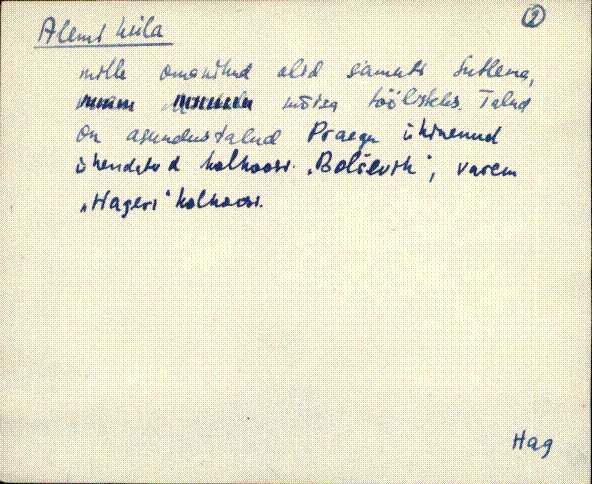 Alemi küla
2
mille omanikud olid samuti Sutlema,
mõisa töölisteks. Talud
on asundustalud Praegu ühinenud
ühendatud kolhoosi „Bolševik", varem
„Hageri" kolhoosi.
Hag